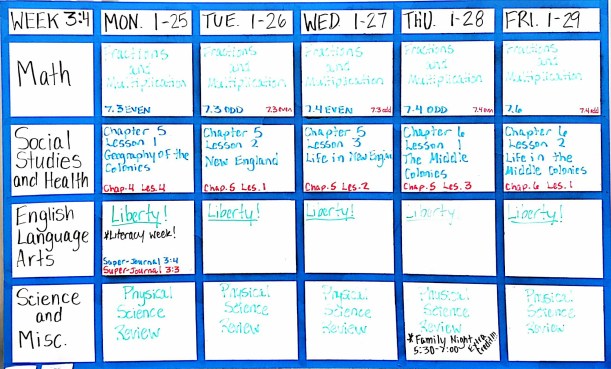 WEEK 3:4 MON. 1-25 TUE. 1-26 WED 1-27 THU. 1-28 FRI. 1-29
Math
Fractions
and
Multiplication
7.3 EVEN
Fractions
and
Multiplication
7.3 ODD 7.3 even
Fractions
and
Multiplication
7.4 EVEN 7.3 odd
Fractions
and
Multiplication
7.4 ODD 7.4 even
Fractions
and
Multiplication
7.6 7.4 odd
Social
Studies
and Health
Chapter 5
Lesson 1
Geography of the
Colonies
Chap.4 Les.4
Chapter 5
Lesson 2
New England
Chap.5 Les.1
Chapter 5
Lesson 3
Life in New England
Chap.5 Les.2
Chapter 6
Lesson 1
The Middle
Colonies
Chap.5 Les.3
Chapter 6
Lesson 2
Life in the
Middle Colonies
Chap.6 Les.1
English
Language
Arts
Liberty!
*Literacy week!
Super-Journal 3:4
Super-Journal 3:3
Liberty!
Liberty!
Liberty!
Liberty!
Science
and
Misc.
Physical
Science
Review
Physical
Science
Review
Physical
Science
Review
Physical
Science
Review
*Family Night
5:30-7:00
Extra
Credit!!
Physical
Science
Review